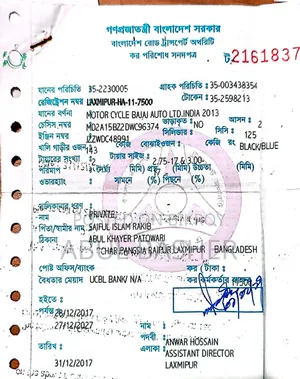 গণপ্রজাতন্ত্রী বাংলাদেশ সরকার
বাংলাদেশ রোড ট্রান্সপোর্ট অথরিটি
কর পরিশোধ সনদপত্র
ট 2161837
যানের পরিচিতি 35-2230005 গ্রাহক পরিচিতি : 35-003438354
রেজিষ্ট্রেশন নম্বর LAXMIPUR-HA-11-7500 টোকেন : 35-2598213
যানের বর্ণনা MOTOR CYCLE BAJAJ AUTO LTD.INDIA 2013
চেসিস নম্বর MD2A15BZ2DWC96374 ভাড়াকৃত : NO আসন : 2
ইঞ্জিন নম্বর JZZWDC48991 সিলিন্ডার : সিসি : 125
খালি গাড়ীর ওজন 143 কেজি বোঝাইওজন : কেজি রং BLACK/BLUE
টায়ারের সংখ্যা 2 টায়ার সাইজ : 2.75-17 & 3.00-
পরিমাপ (মিমি) প্রস্থ (মিমি) উচ্চতা (মিমি)
ওভারহ্যাং : সামনে (%) পিছনে (%)
মালিকানার ধরণ : PRIVATE
নাম : SAIFUL ISLAM RAKIB
পিতা/স্বামীর নাম : ABUL KHAYER PATOWARI
ঠিকানা : CHAR PANGSIA RAIPUR LAXMIPUR BANGLADESH
পোষ্ট অফিস/ব্যাংক
বৈধতার মেয়াদ UCBL BANK/ N/A
কর ( টাকা :
হইতে : 28/12/2017
পর্যন্ত 27/12/2027
নাম :
পদবী : ANWAR HOSSAIN
এলাকা : ASSISTANT DIRECTOR
LAXMIPUR
তারিখ : 31/12/2017